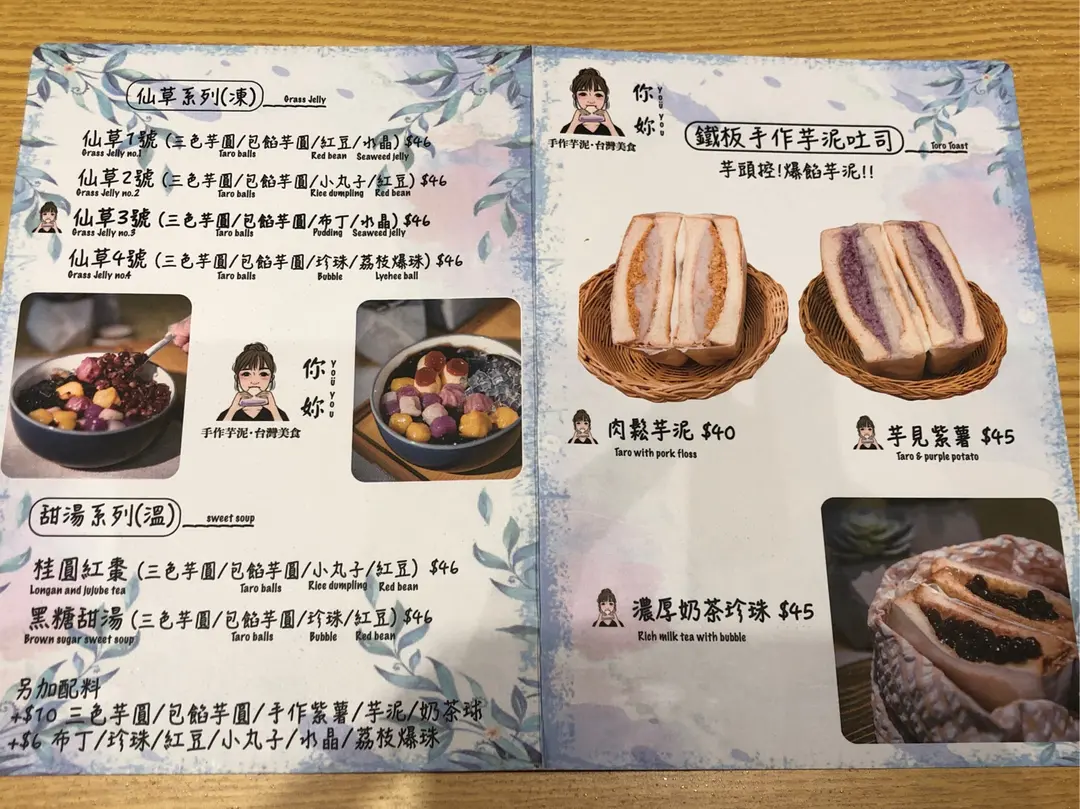 仙草系列(凍) Grass Jelly
仙草1號 (三色芋圓/包餡芋圓/紅豆/水晶) $46
Grass Jelly no.1 Taro balls Red bean Seaweed jelly
仙草2號 (三色芋圓/包餡芋圓/小丸子/紅豆) $46
Grass Jelly no.2 Taro balls Rice dumpling Red bean
仙草3號 (三色芋圓/包餡芋圓/布丁/水晶) $46
Grass Jelly no.3 Taro balls Pudding Seaweed jelly
仙草4號 (三色芋圓/包餡芋圓/珍珠/荔枝爆珠) $46
Grass Jelly no.4 Taro balls Bubble Lyehee ball
你妳 YOU YOU
手作芋泥·台灣美食
甜湯系列(溫) sweet soup
桂圓紅棗 (三色芋圓/包餡芋圓/小丸子/紅豆) $46
Longan and jujube tea Taro balls Rice dumpling Red bean
黑糖甜湯 (三色芋圓/包餡芋圓/珍珠/紅豆) $46
Brown sugar sweet soup Taro balls Bubble Red bean
另加配料
+$10 三色芋圓/包餡芋圓/手作紫薯/芋泥/奶茶球
+$6 布丁/珍珠/紅豆/小丸子/水晶/荔枝爆珠
你妳 YOU YOU
手作芋泥·台灣美食
鐵板手作芋泥吐司 Toro Toast
芋頭控!爆餡芋泥!!
肉鬆芋泥 $40
Taro with pork floss
芋見紫薯 $45
Taro & purple potato
濃厚奶茶珍珠 $45
Rich milk tea with bubble